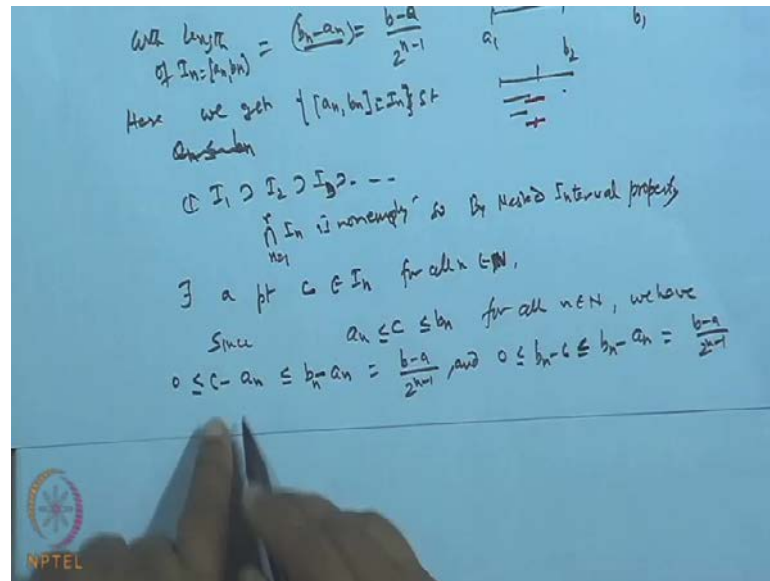 with length = (bn-an) = b-a / 2^{n-1}
of In=[an,bn]
a1 b1
b2
Here we get {[an, bn] = In} st
an ≤ bn
I1 ⊃ I2 ⊃ I3 ⊃ ----
∩_{n=1} In is nonempty so By Nested Interval property
∃ a pt c ∈ In for all n ∈ N,
Since an ≤ c ≤ bn for all n ∈ N, we have
0 ≤ c - an ≤ bn - an = b-a / 2^{n-1}, and 0 ≤ bn - c ≤ bn - an = b-a / 2^{n-1}
NPTEL